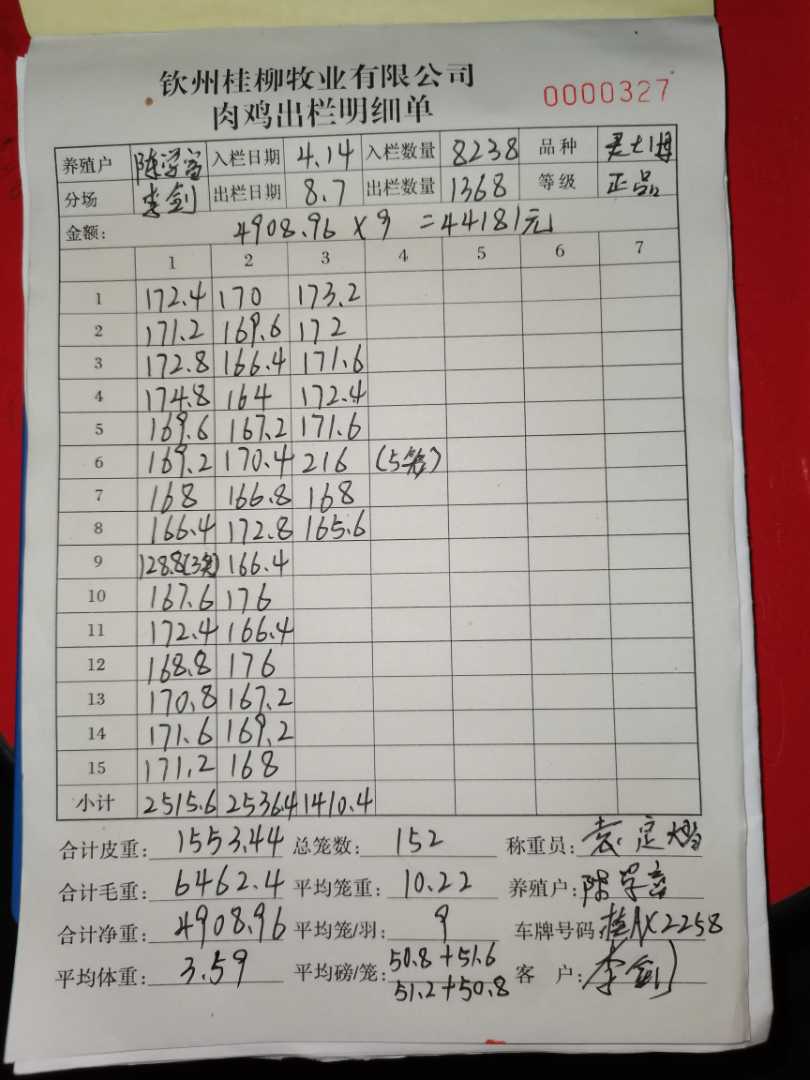 钦州桂柳牧业有限公司
肉鸡出栏明细单 0000327
养殖户 陈学富 入栏日期 4.14 入栏数量 8238 品种
分场 李剑 出栏日期 8.7 出栏数量 1368 等级 正品
金额: 4908.96 × 9 = 44181元
1 2 3 4 5 6 7
1 172.4 170 173.2
2 171.2 169.6 172
3 172.8 166.4 171.6
4 174.8 164 172.4
5 169.6 167.2 171.6
6 169.2 170.4 216 (5笼)
7 168 166.8 168
8 166.4 172.8 165.6
9 128.8(3笼) 166.4
10 167.6 176
11 172.4 166.4
12 168.8 176
13 170.8 167.2
14 171.6 169.2
15 171.2 168
小计 2515.6 2536.4 1410.4
合计皮重: 1553.44 总笼数: 152 称重员: 袁定
合计毛重: 6462.4 平均笼重: 10.22 养殖户: 陈学富
合计净重: 4908.96 平均笼/羽: 9 车牌号码: 桂AX2258
平均体重: 3.59 平均磅/笼: 50.8+51.6 客 户: 李剑
51.2+50.8